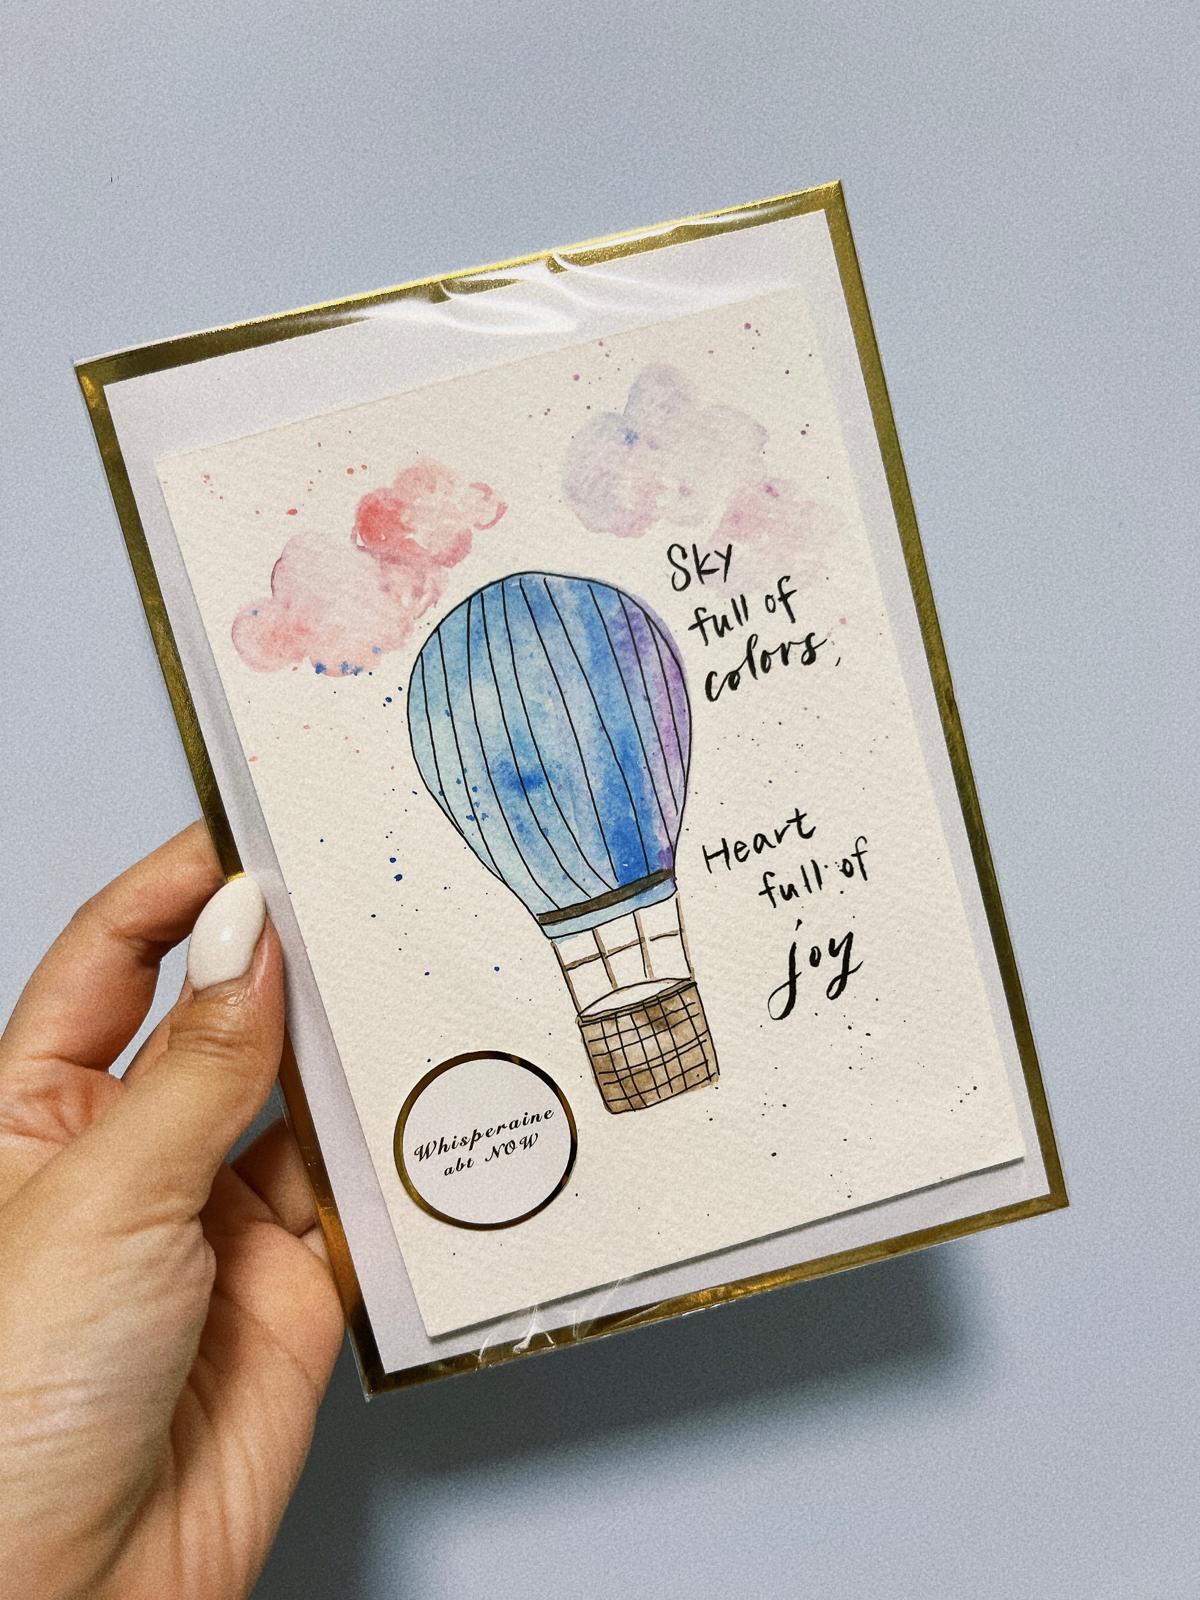 Sky
full of
colors,
Heart
full of
joy
Whisperaine
abt NOW